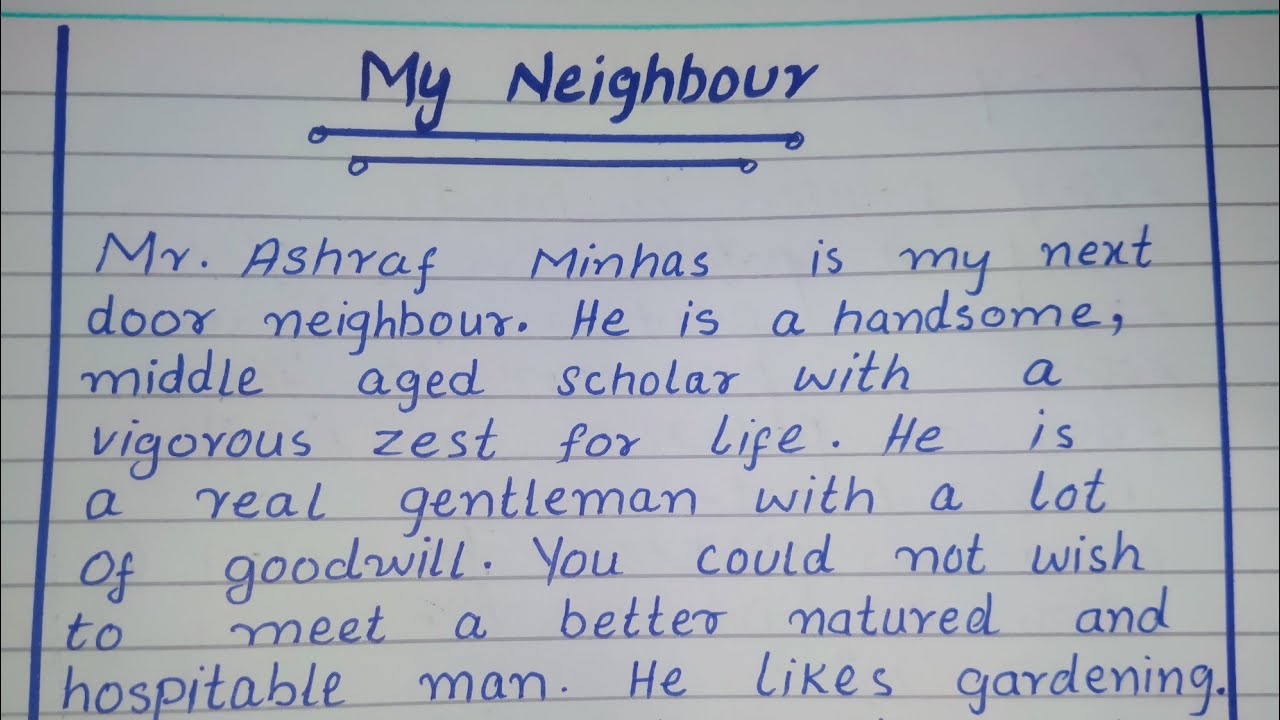 My Neighbour
Mr. Ashraf Minhas is my next
door neighbour. He is a handsome,
middle aged scholar with a
vigorous zest for life. He is
a real gentleman with a lot
Of goodwill. You could not wish
to meet a better natured and
hospitable man. He likes gardening.